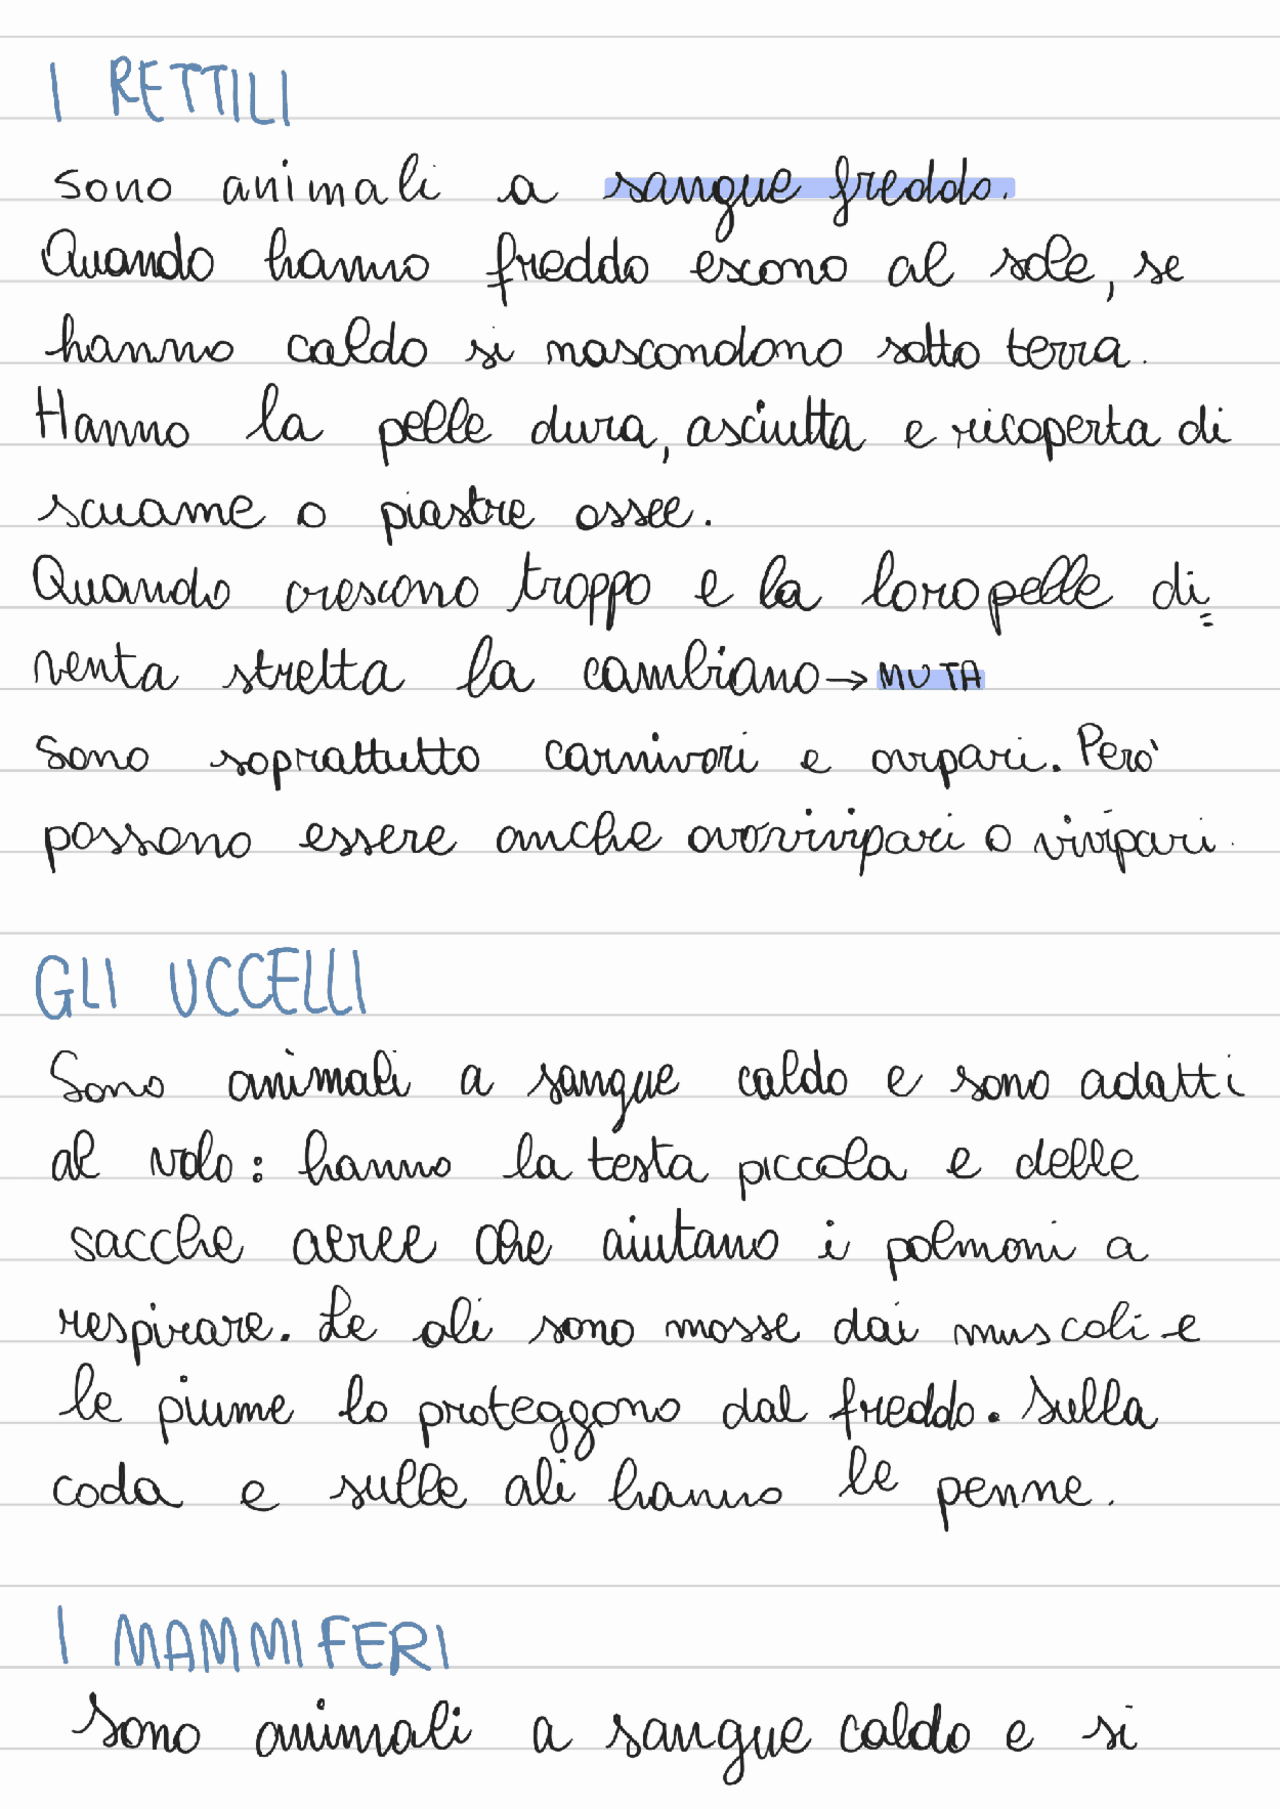 I RETTILI
sono animali a sangue freddo.
Quando hanno freddo escono al sole, se
hanno caldo si nascondono sotto terra.
Hanno la pelle dura, asciutta e ricoperta di
scuame o piastre ossee.
Quando crescono troppo e la loro pelle di=
venta stretta la cambiano → MUTA
Sono soprattutto carnivori e ovipari. Però
possono essere anche ovovivipari o vivipari.
GLI UCCELLI
Sono animali a sangue caldo e sono adatti
al volo: hanno la testa piccola e delle
sacche aeree che aiutano i polmoni a
respirare. Le ali sono mosse dai muscoli e
le piume lo proteggono dal freddo. Sulla
coda e sulle ali hanno le penne.
I MAMMIFERI
Sono animali a sangue caldo e si